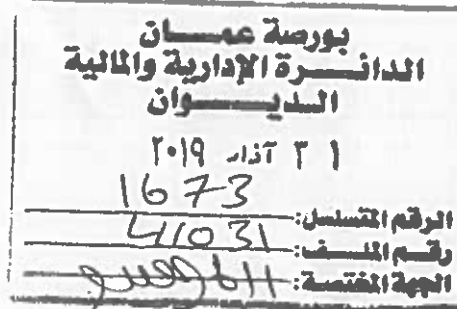 بورصة عمـــان
الدائـــرة الإدارية والمالية
الـديـــوان
٣١ آذار ٢٠١٩
الرقم المتسلسل: 1673
رقـم الملـف: 41031
الجهة المختصة: